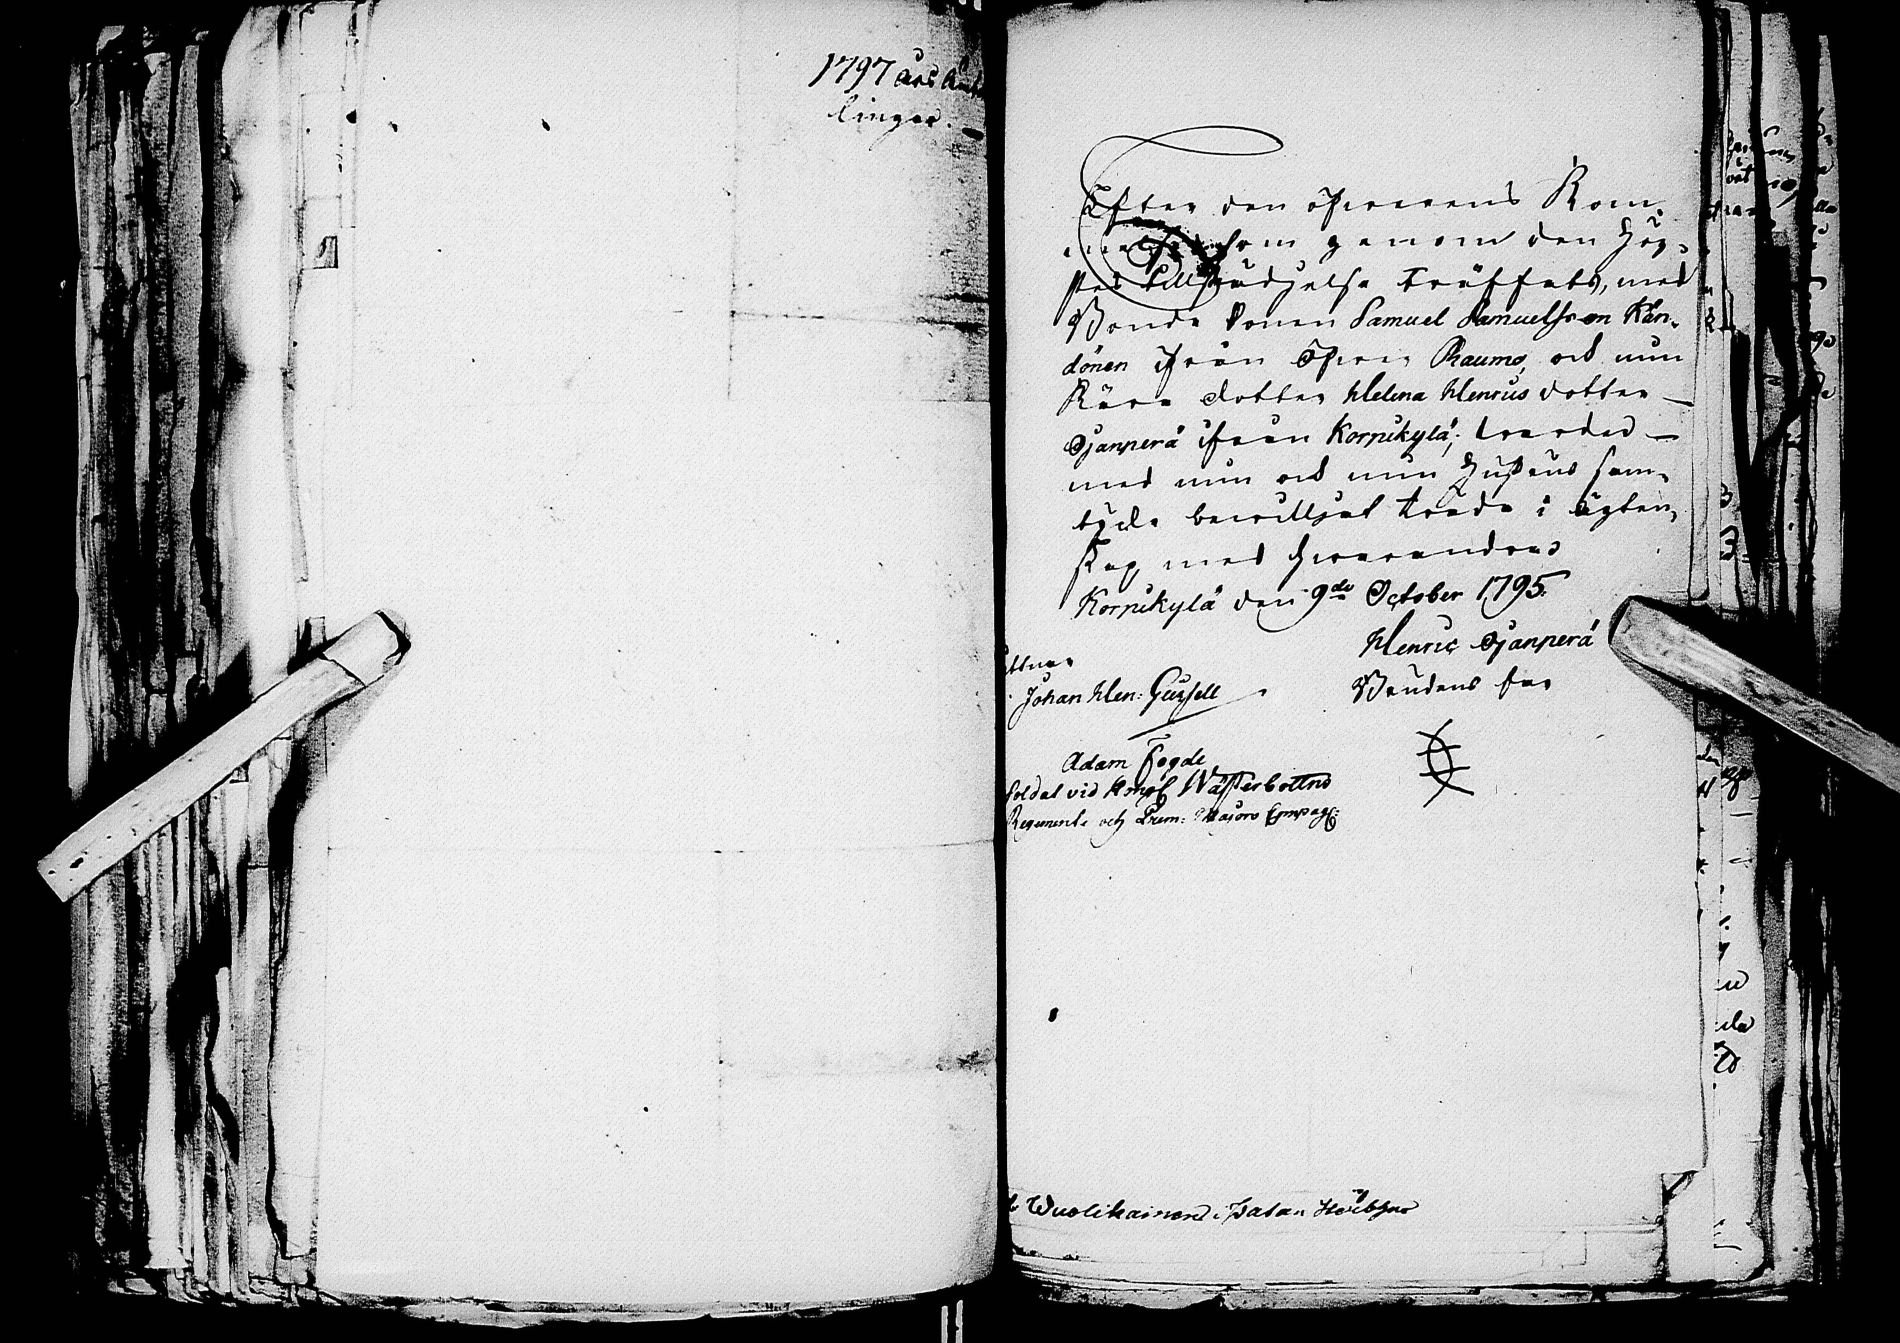 1797 års Anm
lingar.
Efter den öfverens Kom
melse som genom den Hög-
stes tillstädjelse träffats, med
Bonde Sonen Samuel Samuelsson Kän-
dönen ifrån Öfver Raumo, och min
Kära dotter Helena Henrics dotter
Djanperä ifrån Korpikylä; warder
med min och min Hustrus sam-
tycke bewilljat träda i ägten-
skap med hwarandra
Korpikylä den 9de October 1795.
Henric Djanperä
Brudens far
ittnar
Johan Hen:
Adam Fogde
Soldat vid Kongl Wästerbottns
Regemente och Prem: Majors Compagn:
Wuolikainen i